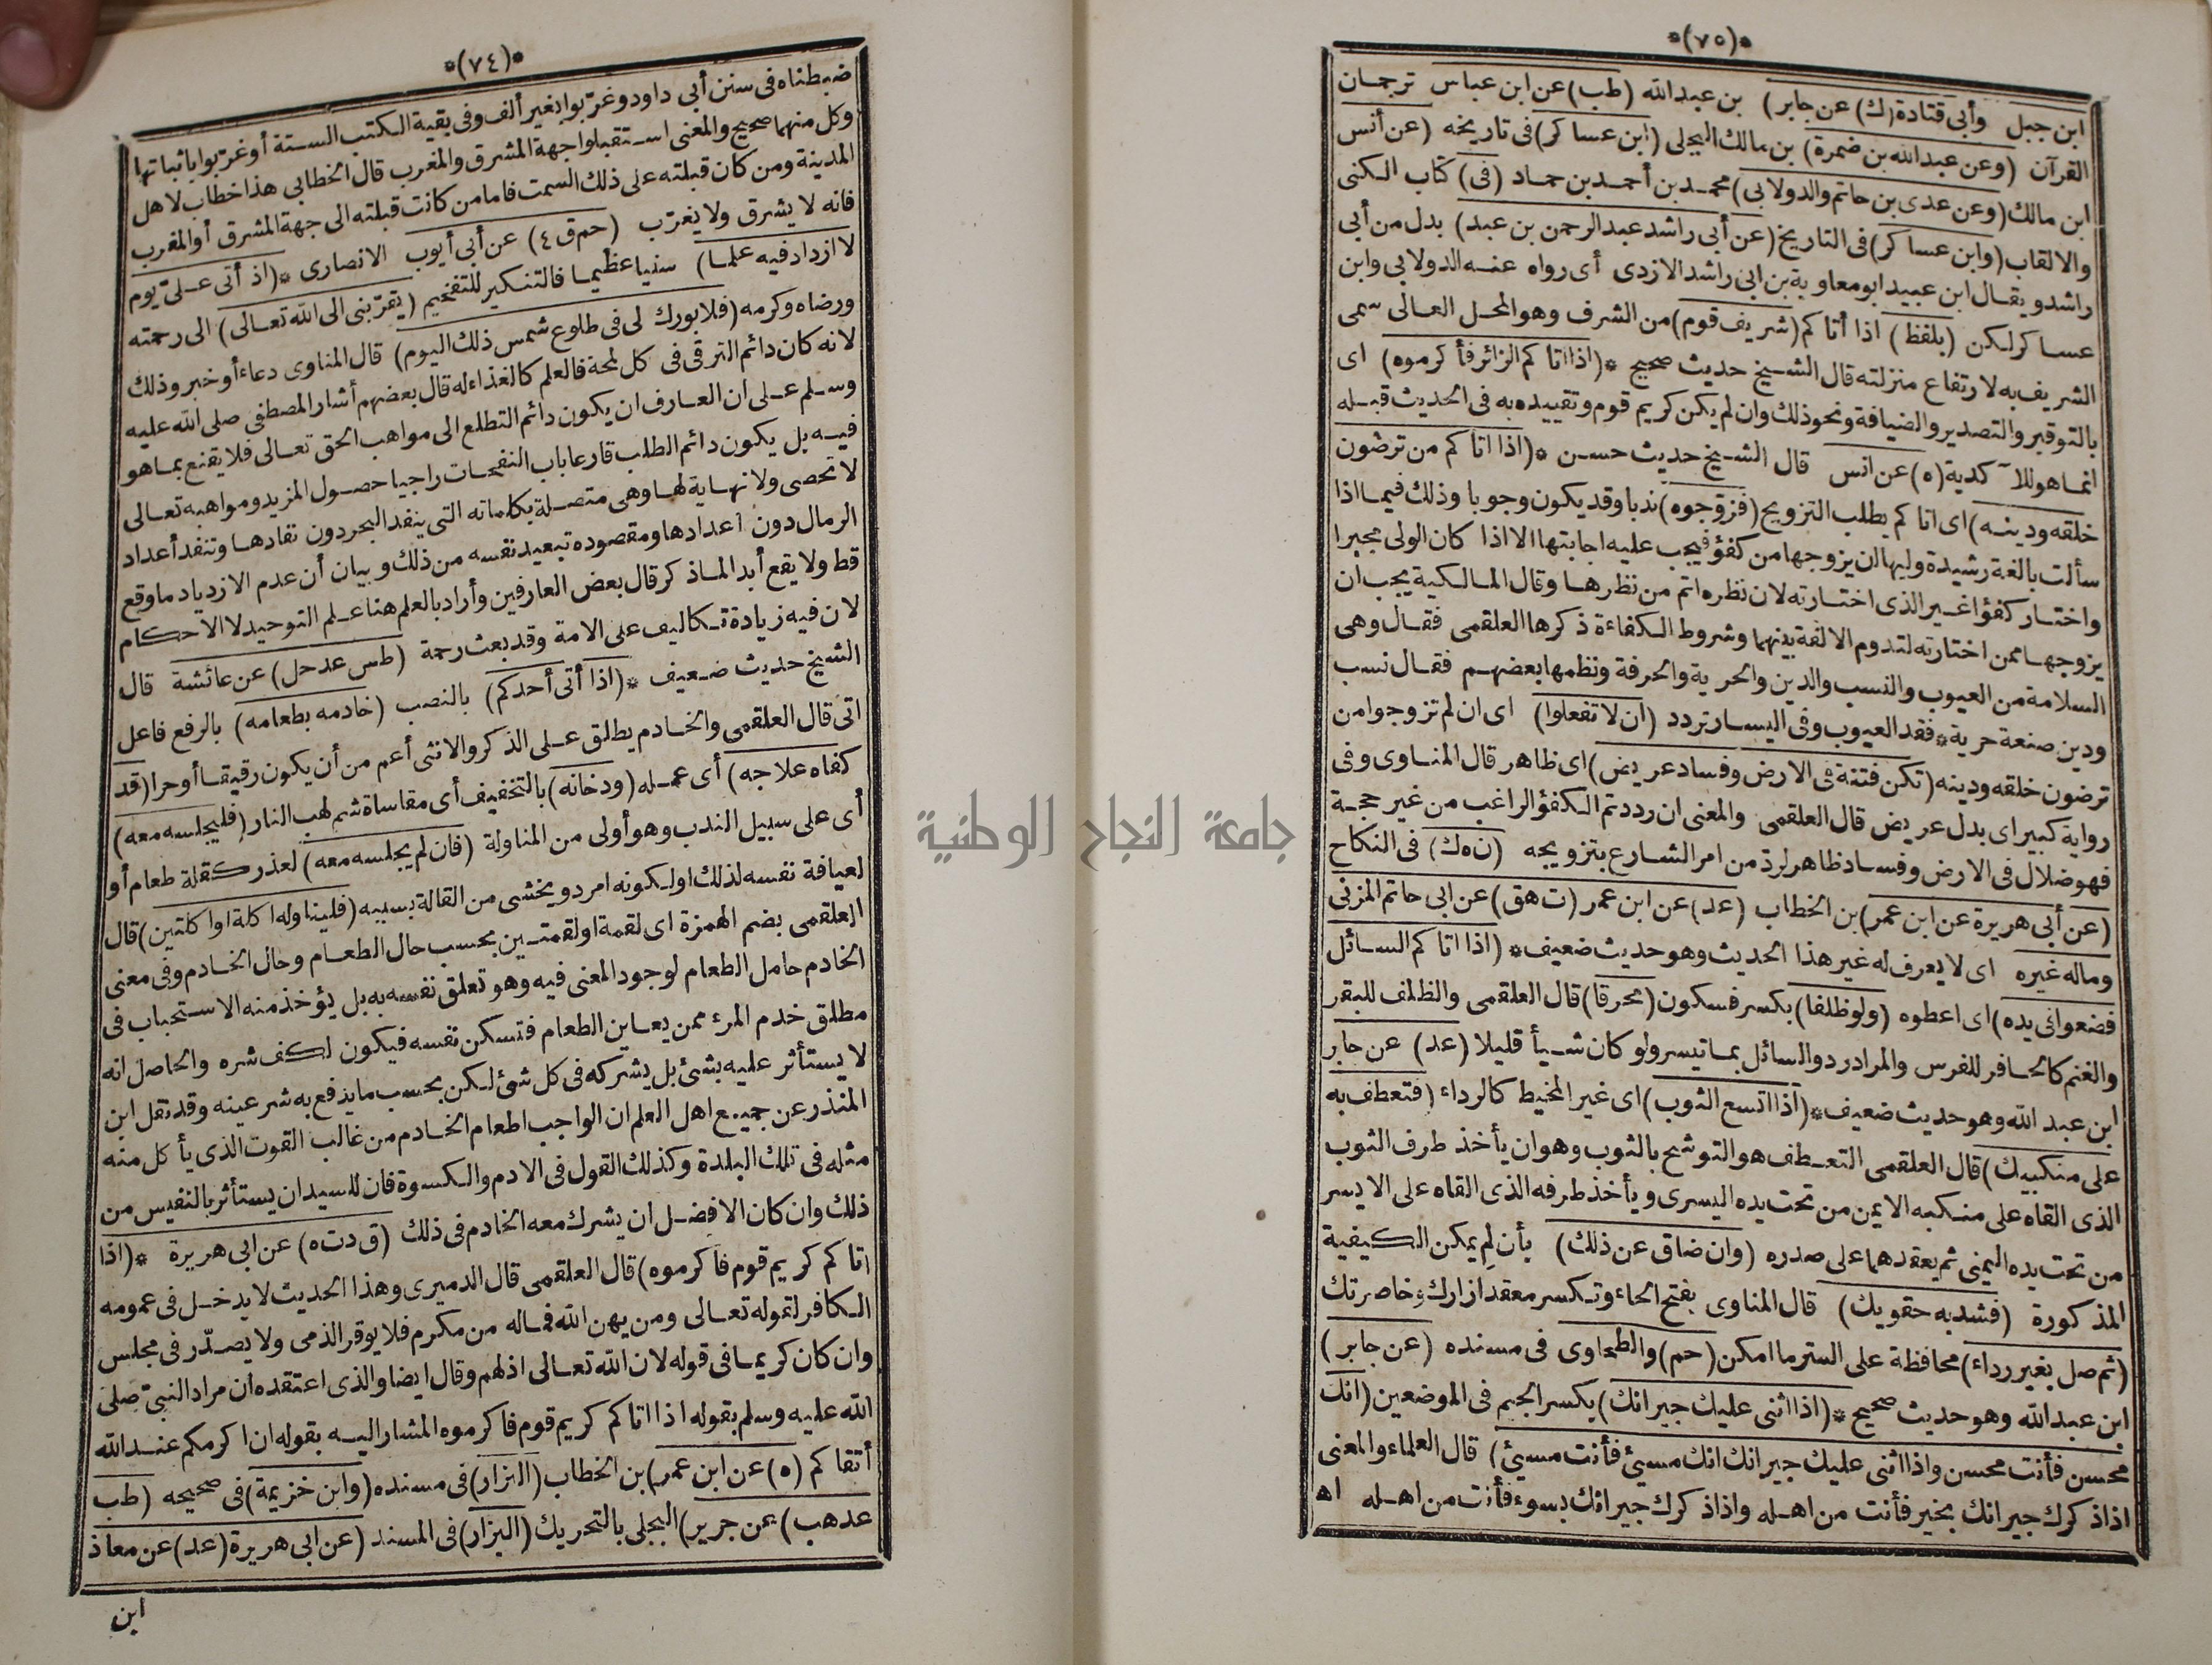 *(٧٤)*
ضبطناه فى سنن أبى داود وغربوا بغير ألف وفى بقية الكتب الستة أو غربوا باثباتها
وكل منهما صحيح والمعنى استقبلوا جهة المشرق والمغرب قال الخطابى هذا خطاب لاهل
المدينة ومن كان قبلته على ذلك السمت فامامن كانت قبلته الى جهة المشرق أو المغرب
فانه لا يشرق ولا يغرّب (حم ق ٤) عن أبى أيوب الانصارى *(اذ أتى علىّ يوم
لا ازداد فيه علما) سنيا عظيما فالتنكير للتفخيم (يقرّبنى الى الله تعالى) الى رحمته
ورضاه وكرمه (فلا بورك لى فى طلوع شمس ذلك اليوم) قال المناوى دعاء أو خبر وذلك
لانه كان دائم الترقى فى كل لمحة فالعلم كالغذاء له قال بعضهم أشار المصطفى صلى الله عليه
وسلم على ان العارف ان يكون دائم التطلع الى مواهب الحق تعالى فلا يقنع بما هو
فيه بل يكون دائم الطلب قارعا باب النفحات راجيا حصول المزيد ومواهبه تعالى
لا تحصى ولا نهاية لها وهى متصلة بكلماته التى ينفد البحر دون نفادها وتنفد أعداد
الرمال دون أعدادها ومقصوده تبعيد نفسه من ذلك وبيان أن عدم الازدياد ما وقع
قط ولا يقع أبد الماذ كر قال بعض العارفين وأراد بالعلم هنا علم التوحيد لا الاحكام
لان فيه زيادة تكاليف على الامة وقد بعث رحمة (طس عد حل) عن عائشة قال
الشيخ حديث ضعيف *(اذا أتى أحدكم) بالنصب (خادمه بطعامه) بالرفع فاعل
اتى قال العلقمى والخادم يطلق على الذكر والانثى أعم من أن يكون رقيقا أو حرا (قد
كفاه علاجه) أى عمله (ودخانه) بالتخفيف أى مقاساة شم لهب النار (فليجلسه معه)
أى على سبيل الندب وهو أولى من المناولة (فان لم يجلسه معه) لعذر كقلة طعام أو
لعيافة نفسه لذلك اولكونه امرد ويخشى من القالة بسببه (فليناوله اكلة او اكلتين) قال
العلقمى بضم الهمزة اى لقمة او لقمتين بحسب حال الطعام وحال الخادم وفى معنى
الخادم حامل الطعام لوجود المعنى فيه وهو تعلق نفسه به بل يؤخذ منه الاستحباب فى
مطلق خدم المرء ممن يعاين الطعام فتسكن نفسه فيكون اكف شره والحاصل انه
لا يستأثر عليه بشئ بل يشركه فى كل شئ لكن بحسب ما يدفع به شر عينه وقد نقل ابن
المنذر عن جميع اهل العلم ان الواجب اطعام الخادم من غالب القوت الذى يأكل منه
مثله فى تلك البلدة وكذلك القول فى الادم والكسوة فان للسيد ان يستأثر بالنفيس من
ذلك وان كان الافضل ان يشرك معه الخادم فى ذلك (ق د ت ه) عن ابى هريرة *(اذا
اتاكم كريم قوم فأكرموه) قال العلقمى قال الدميرى وهذا الحديث لا يدخل فى عمومه
الكافر لقوله تعالى ومن يهن الله فماله من مكرم فلا يوقر الذمى ولا يصدّر فى مجلس
وان كان كريما فى قوله لان الله تعالى اذلهم وقال ايضا والذى اعتقده ان مراد النبىّ صلى
الله عليه وسلم بقوله اذا اتاكم كريم قوم فاكرموه المشار اليه بقوله ان اكرمكم عند الله
أتقاكم (ه) عن ابن عمر) بن الخطاب (البزار) فى مسنده (وابن خزيمة) فى صحيحه (طب
عد هب) عن جرير) البجلى بالتحريك (البزار) فى المسند (عن ابى هريرة (عد) عن معاذ
ابن
*(٧٥)*
ابن جبل وأبى قتادة (ك) عن جابر) بن عبد الله (طب) عن ابن عباس ترجمان
القرآن (وعن عبد الله بن ضمرة) بن مالك البجلى (ابن عساكر) فى تاريخه (عن أنس
ابن مالك (وعن عدى بن حاتم والدولابى) محمد بن أحمد بن حماد (فى) كتاب الكنى
والالقاب (وابن عساكر) فى التاريخ (عن أبى راشد عبد الرحمن بن عبد) بدل من أبى
راشد ويقال ابن عبيد ابو معاوية بن ابى راشد الازدى أى رواه عنه الدولابى وابن
عساكر لكن (بلفظ) اذا أتاكم (شريف قوم) من الشرف وهو المحل العالى سمى
الشريف به لارتفاع منزلته قال الشيخ حديث صحيح *(اذا اتاكم الزائر فأكرموه) اى
بالتوقير والتصدير والضيافة ونحو ذلك وان لم يكن كريم قوم وتقييده به فى الحديث قبله
انما هو للآكدية (ه) عن انس قال الشيخ حديث حسن *(اذا اتاكم من ترضون
خلقه ودينه) اى اتاكم يطلب التزويج (فزوّجوه) ندبا وقد يكون وجوبا وذلك فيما اذا
سألت بالغة رشيدة وليها ان يزوجها من كفؤ فيجب عليه اجابتها الا اذا كان الولى مجبرا
واختار كفؤا غير الذى اختارته لان نظره اتم من نظرها وقال المالكية يجب ان
يزوجها ممن اختارته لتدوم الالفة بينهما وشروط الكفاءة ذكرها العلقمى فقال وهى
السلامة من العيوب والنسب والدين والحرية والحرفة ونظمها بعضهم فقال نسب
ودين صنعة حرية * فقد العيوب وفى اليسار تردد (ان لا تفعلوا) اى ان لم تزوجوا من
ترضون خلقه ودينه (تكن فتنة فى الارض وفساد عريض) اى ظاهر قال المناوى وفى
رواية كبير اى بدل عريض قال العلقمى والمعنى ان رددتم الكفؤ الراغب من غير حجة
فهو ضلال فى الارض وفساد ظاهر لردّ من امر الشارع بتزويجه (ت ه ك) فى النكاح
(عن أبى هريرة عن ابن عمر) بن الخطاب (عد) عن ابن عمر (ت هق) عن ابى حاتم المزنى
وماله غيره اى لا يعرف له غير هذا الحديث وهو حديث ضعيف *(اذا اتاكم السائل
فضعوا فى يده) اى اعطوه (ولو ظلفا) بكسر فسكون (محرقا) قال العلقمى والظلف للبقر
والغنم كالحافر للفرس والمراد ردوا السائل بما تيسر ولو كان شيأ قليلا (عد) عن جابر
ابن عبد الله وهو حديث ضعيف *(اذا اتسع الثوب) اى غير المخيط كالرداء (فتعطف به
على منكبيك) قال العلقمى التعطف هو التوشح بالثوب وهو ان يأخذ طرف الثوب
الذى القاه على منكبه الايمن من تحت يده اليسرى ويأخذ طرفه الذى القاه على الايسر
من تحت يده اليمنى ثم يعقدهما على صدره (وان ضاق عن ذلك) بأن لم يمكن الكيفية
المذكورة (فشد به حقويك) قال المناوى بفتح الحاء وتكسر معقد ازارك وخاصرتك
(ثم صل بغير رداء) محافظة على الستر ما امكن (حم) والطحاوى فى مسنده (عن جابر)
ابن عبد الله وهو حديث صحيح *(اذا اثنى عليك جيرانك) بكسر الجيم فى الموضعين (انك
محسن فأنت محسن واذا اثنى عليك جيرانك انك مسئ فأنت مسئ) قال العلماء والمعنى
اذا ذكرك جيرانك بخير فأنت من اهله واذا ذكرك جيرانك بسوء فأنت من اهله اه
جامعة النجاح الوطنية